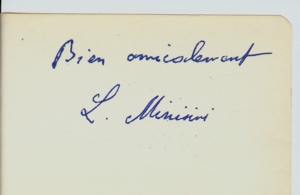 Bien amicalement
L. Minisini